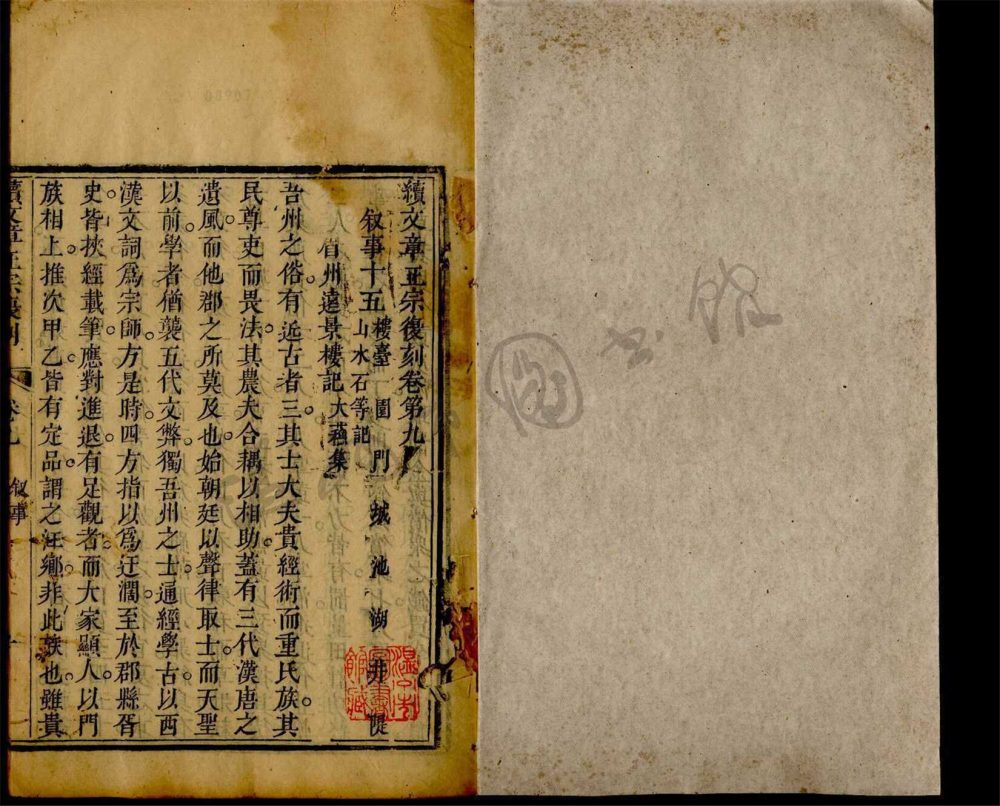 續文章正宗復刻卷第九
叙事十五 樓臺 園 門 城 池 湖 井 隄
山水石等記
眉州遠景樓記 大蘇集
吾州之俗有近古者三其士大夫貴經術而重氏族其
民尊吏而畏法其農夫合耦以相助蓋有三代漢唐之
遺風而他郡之所莫及也始朝廷以聲律取士而天聖
以前學者猶襲五代文弊獨吾州之士通經學古以西
漢文詞爲宗師方是時四方指以爲迂濶至於郡縣胥
史皆挾經載筆應對進退有足觀者而大家顯人以門
族相上推次甲乙皆有定品謂之江鄉非此族也雖貴
續文章正宗復刻 卷九 叙事